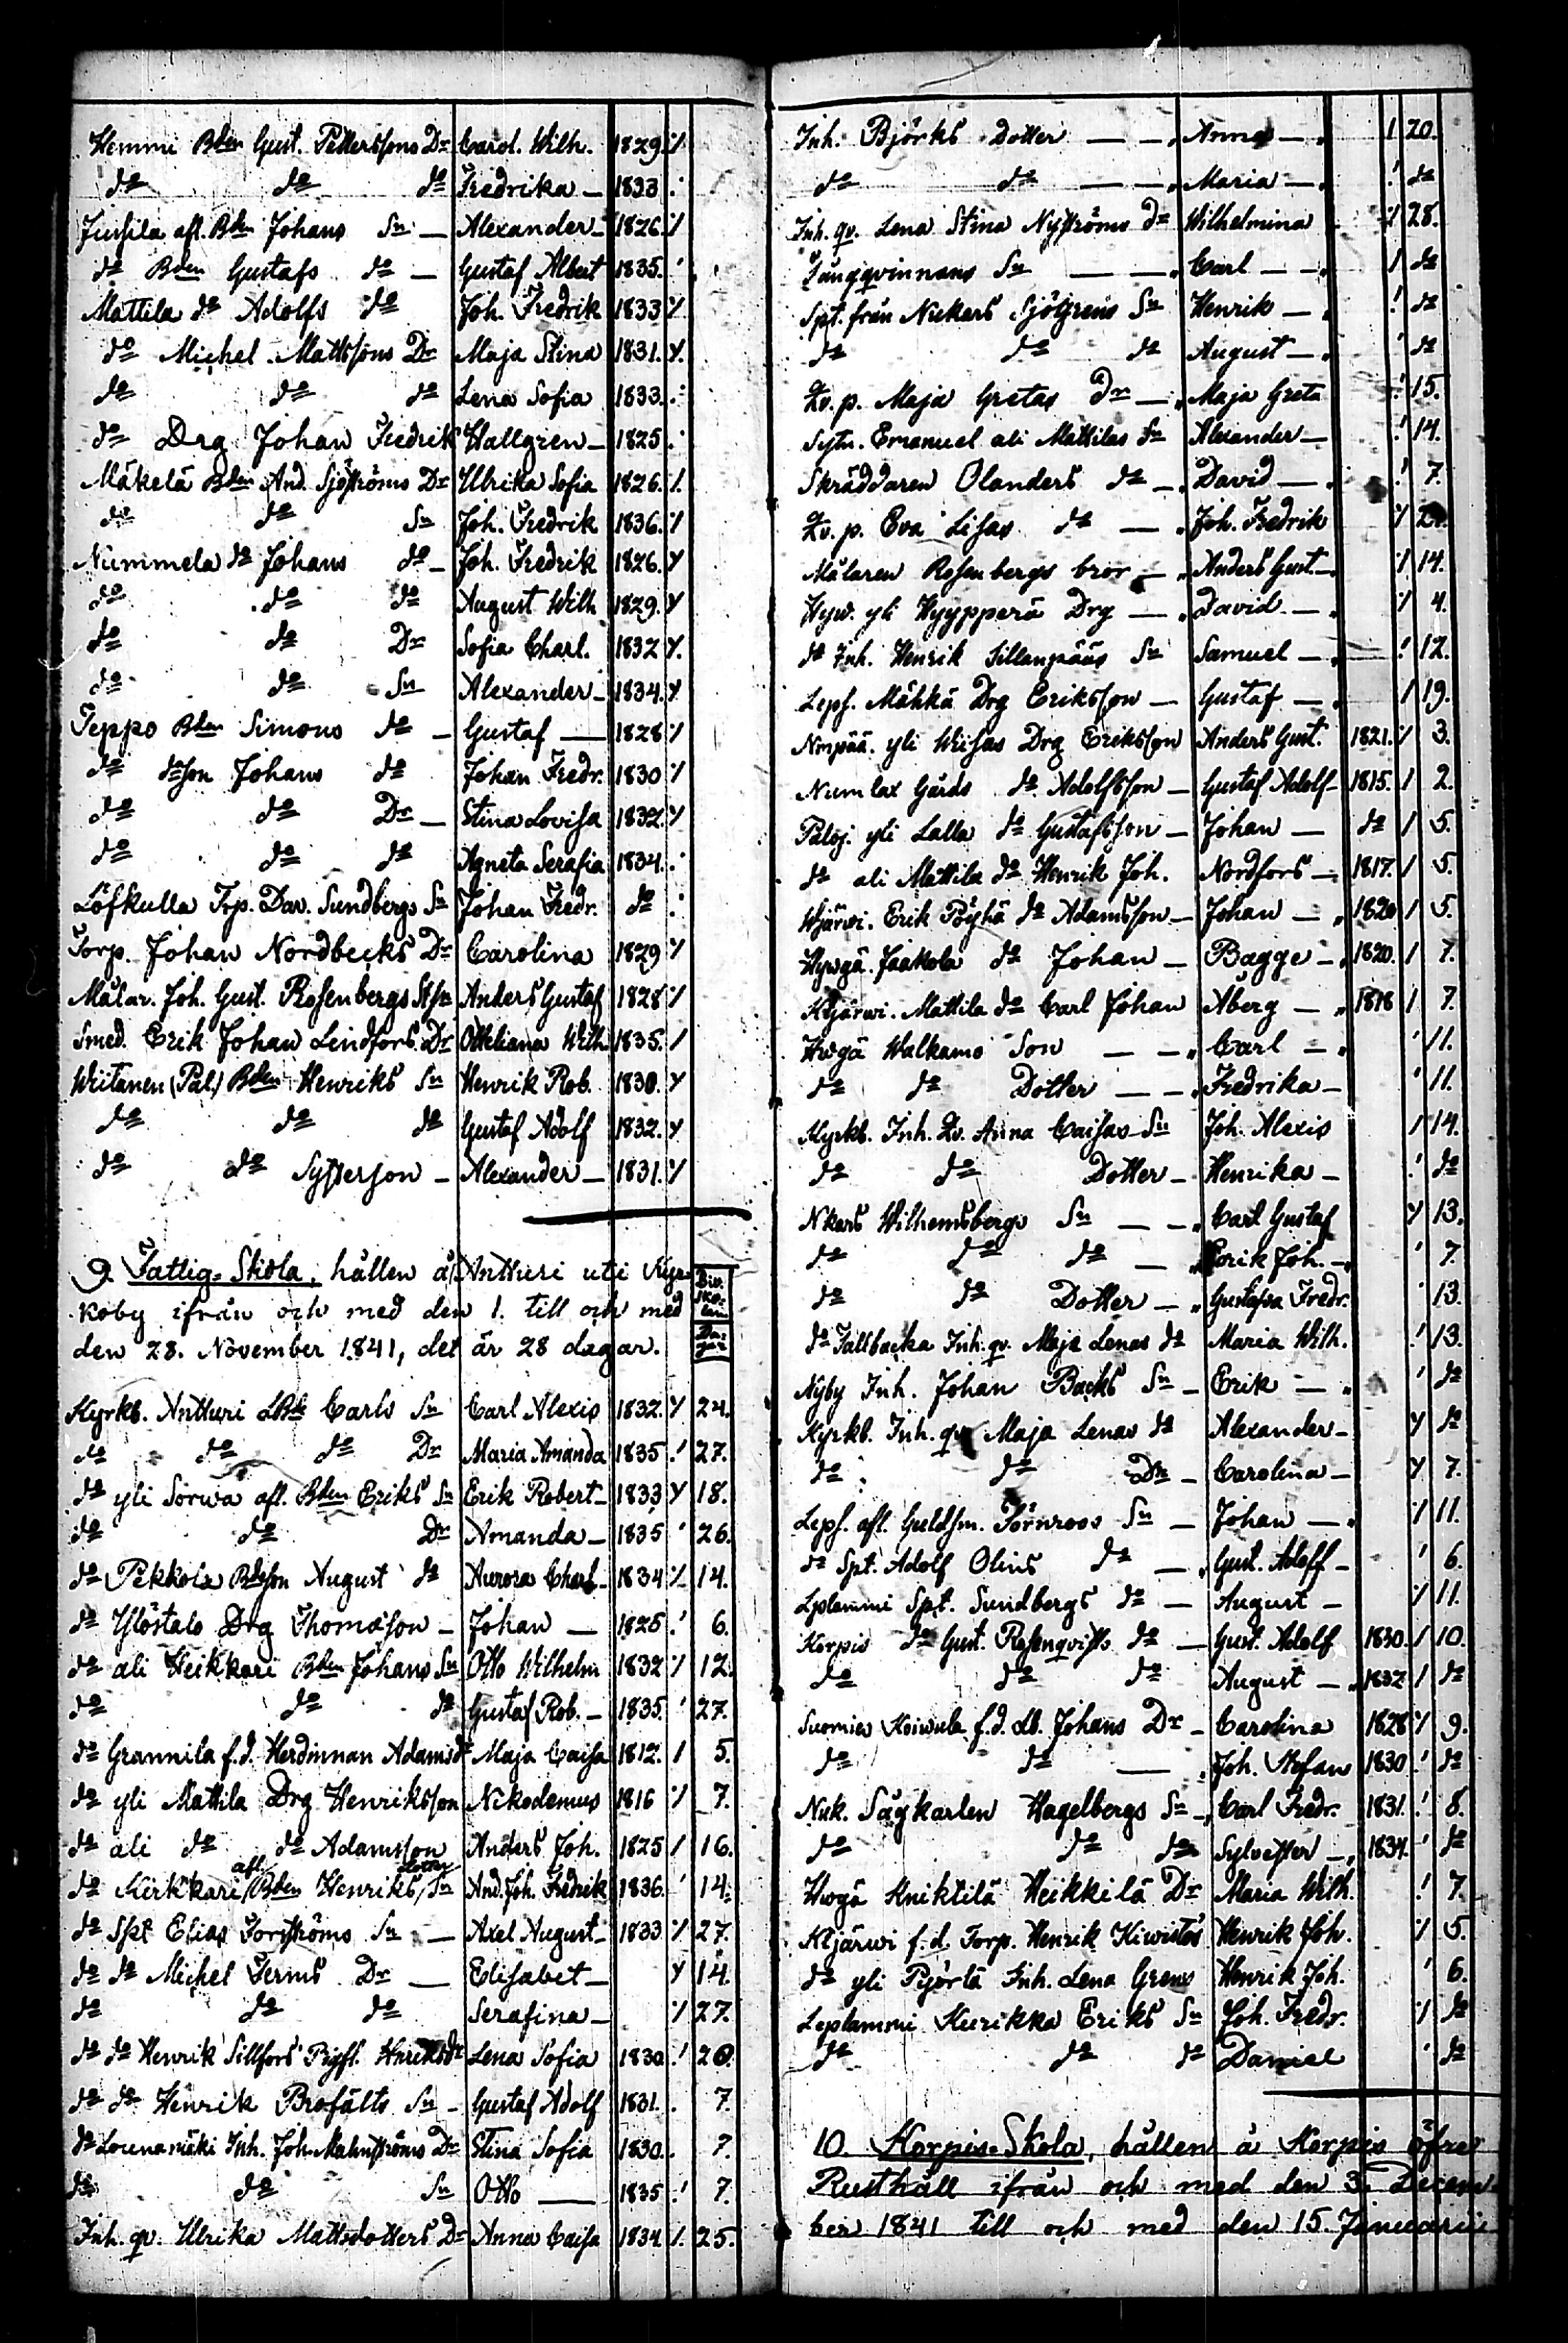 Hemmi Bden Gust. Pettersfons Dr Carol. Wilh. 1829. ٪
do do do Fredrika — 1833 .·
Jussila afl. Bden Johans Sn — Alexander — 1826. ٪
do Bden Gustafs do — Gustaf Albert 1835. ·
Mattila do Adolfs do Joh. Fredrik 1833 y
do Michel Mattssons Dr Maja Stina 1831. y.
do do do Lena Sofia 1833. .·
do Drg Johan Fredrik Hallgren — 1825 .·
Mäkelä Bden And. Sjöströms Dr Ulrika Sofia 1826. /.
do do Sn Joh. Fredrik 1836. ٪
Nummela do Johans do — Joh. Fredrik 1826. y
do do do August Wilh 1829. y
do do Dr Sofia Charl. 1832 y.
do do Sn Alexander — 1834. y.
Seppo Bden Simons do — Gustaf — 1828 ٪
do do son Johans do Johan Fredr. 1830 ٪
do do Dr — Stina Lovisa 1832. y
do do do Agneta Serafia 1834. .·
Löfkulla Trp. Dav. Sundbergs Sn Johan Fredr. do .·
Torp. Johan Nordbecks Dr Carolina 1829 ٪
Målar. Joh. Gust. Rosenbergs Anders Gustaf 1828 ٪
Smed. Erik Johan Lindfors Dr Otteliana Wilh 1835. /
Wiitanen (Pal) Bden Henriks Sn Henrik Rob. 1830. y
do do do Gustaf Adolf 1832. y
do do Systerson — Alexander — 1831. ٪
9. Fattig-Skola, hållen å Antturi uti Kyr-
koby ifrån och med den 1. till och med
den 28. November 1841, det är 28 dagar.
Biv. Skolan Dagar
Kyrkb. Antturi LBde Carls Sn Carl Alexis 1832. y 24.
do do do Dr Maria Amanda 1835 .' 27.
do yli Sorwa afl. Bden Eriks Sn Erik Robert — 1833 y 18.
do do Dr Amanda — 1835 ' 26.
do Pekkola Bdeson August do Aurora Charl. 1834 ٪ 14.
do Ylöstalo Drg Thomasson — Johan — 1825 .' 6.
do ali Heikkari Bden Johans Sn Otto Wilhelm 1832 ٪ 12.
do do do Gustaf Rob. — 1835. ' 27.
do Grannila f.d. Herdinnan Adamsdr Maja Caisa 1812. / 5.
do yli Mattila Drg Henriksson Nikodemus 1816 ٪ 7.
do ali do do Adamsson Anders Joh. 1825 / 16.
do Kirkkari afl. Bden Henriks dotters Sn And. Joh. Fredrik 1836. ' 14.
do Spt Elias Forströms Sn — Axel August — 1833 ٪ 27.
do do Michel Ferms Dr — Elisabet — y 14.
do do do Serafina — ٪ 27.
do do Henrik Sillfors Henriksdr Lena Sofia 1830 .' 20.
do do Henrik Brofälts Sn — Gustaf Adolf 1831. . 7.
do Lounamäki Inh. Joh. Malmströms Dr Stina Sofia 1830. . 7.
do do Sn Otto — 1835 .' 7.
Inh. qv. Ulrika Mattsdotters Dr Anna Caisa 1834 ٪. 25.
Inh. Björks Dotter — Anna — / 20.
do do — Maria — .' do
Inh. qv. Lena Stina Nyströms do Wilhelmina ٪ 28.
Sn — Carl — / do
Spt. från Nickars Sjögrens Sn Henrik — .' do
do do do August — ' do
Qv. p. Maja Gretas Dr — Maja Greta .' 15.
Sytn. Emanuel ali Mattilas Sn Alexander — .' 14.
Skräddaren Olanders do — David — .' 7.
Qv. p. Eva Lisas do — Joh. Fredrik ٪
Målaren Rosenbergs bror — Anders Gust. — ٪ 14.
Hyw. yli Hyypperä Drg — David — ٪ 4.
do Inh. Henrik Sillanpääs Sn Samuel — .' 12.
Leps. Mähkä Drg Eriksson — Gustaf — / 19.
Nmpää. yli Weisas Drg Eriksson Anders Gust. 1821. ٪ 3.
Numlax Gårds do Adolfsson — Gustaf Adolf — 1815. / 2.
Paloj. yli Lalla do Gustafsson — Johan — do / 5.
do ali Mattila do Henrik Joh. Nordfors — 1817. / 5.
Wjärwi. Erik Pöyhä do Adamsson — Johan — 1820 / 5.
Hywgä. Jaakola do Johan — Bagge — 1820. / 7.
Kljärwi. Mattila do Carl Johan Åberg — 1818 / 7.
Hwgä Walkamo Son — Carl — ' 11.
do do Dotter — Fredrika — ' 11.
Kyrkb. Inh. Qv. Anna Caisas Sn Joh. Alexis / 14.
do do Dotter — Henrika — .' do
Nkars Wilhemsbergs Sn — Carl Gustaf y 13.
do do do — Erik Joh. — ' 7.
do do Dotter — Gustafva Fredr. ' 13.
do Tallbacka Inh. qv. Maja Lenas do Maria Wilh. .' 13.
Nyby Inh. Johan Backs Sn — Erik — ' do
Kyrkb. Inh. qv. Maja Lenas do Alexander — y do
do do Dr — Carolina — y 7.
Leps. afl. Guldsm. Törnroos Sn — Johan — ٪ 11.
do Spt. Adolf Olins do — Gust. Adolf — ' 6.
Leplammi Spt. Sundbergs do — August — ٪ 11.
Korpis do Gust. Rosenqvists do — Gust. Adolf 1830. / 10.
do do do August — 1832 / do
Suomies Koiwula f.d. Lb. Johans Dr — Carolina 1828 ٪ 9.
do do — Joh. Stefan 1830 .' do
Nuk. Sågkarlen Hagelbergs Sn — Carl Fredr. 1831. .' 8.
do do do Sylvester — 1834. ' do
Hwgä Kniktilä Heikkilä Dr Maria Wilh. .' 7.
Kljärwi f.d. Torp. Henrik Kiwistös Henrik Joh. ٪ 5.
do yli Pyörlä Inh. Lena Grens Henrik Joh. ' 6.
Leplammi Kurikka Eriks Sn Joh. Fredr. ٪ do
do do do Daniel ' do
10. Korpis-Skola, hållen å Korpis öfre
Rusthåll ifrån och med den 3. Decem-
ber 1841 till och med den 15. Januarii